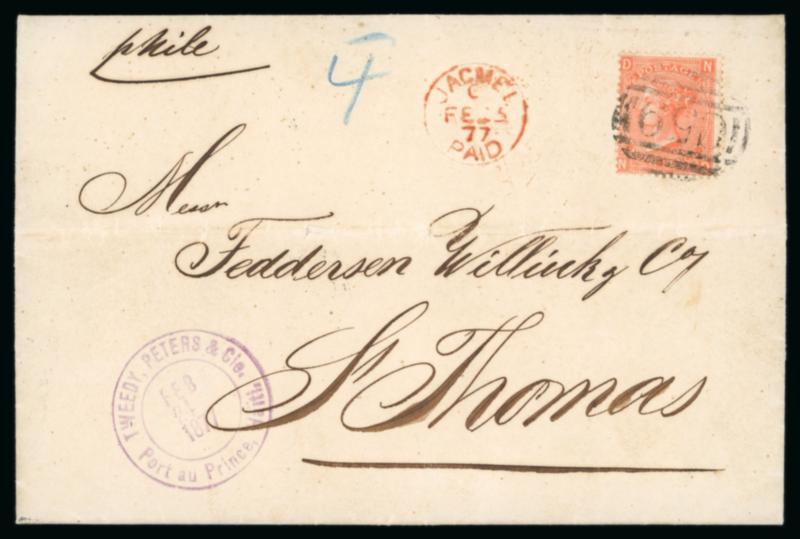 phile
4
JACMEL
C
FE 5
77
PAID
D N
POSTAGE
N
C59
Messrs
Feddersen Willink & Co
St Thomas
TWEEDY, PETERS & Cie.
FEB
187
Port au Prince, Haiti.